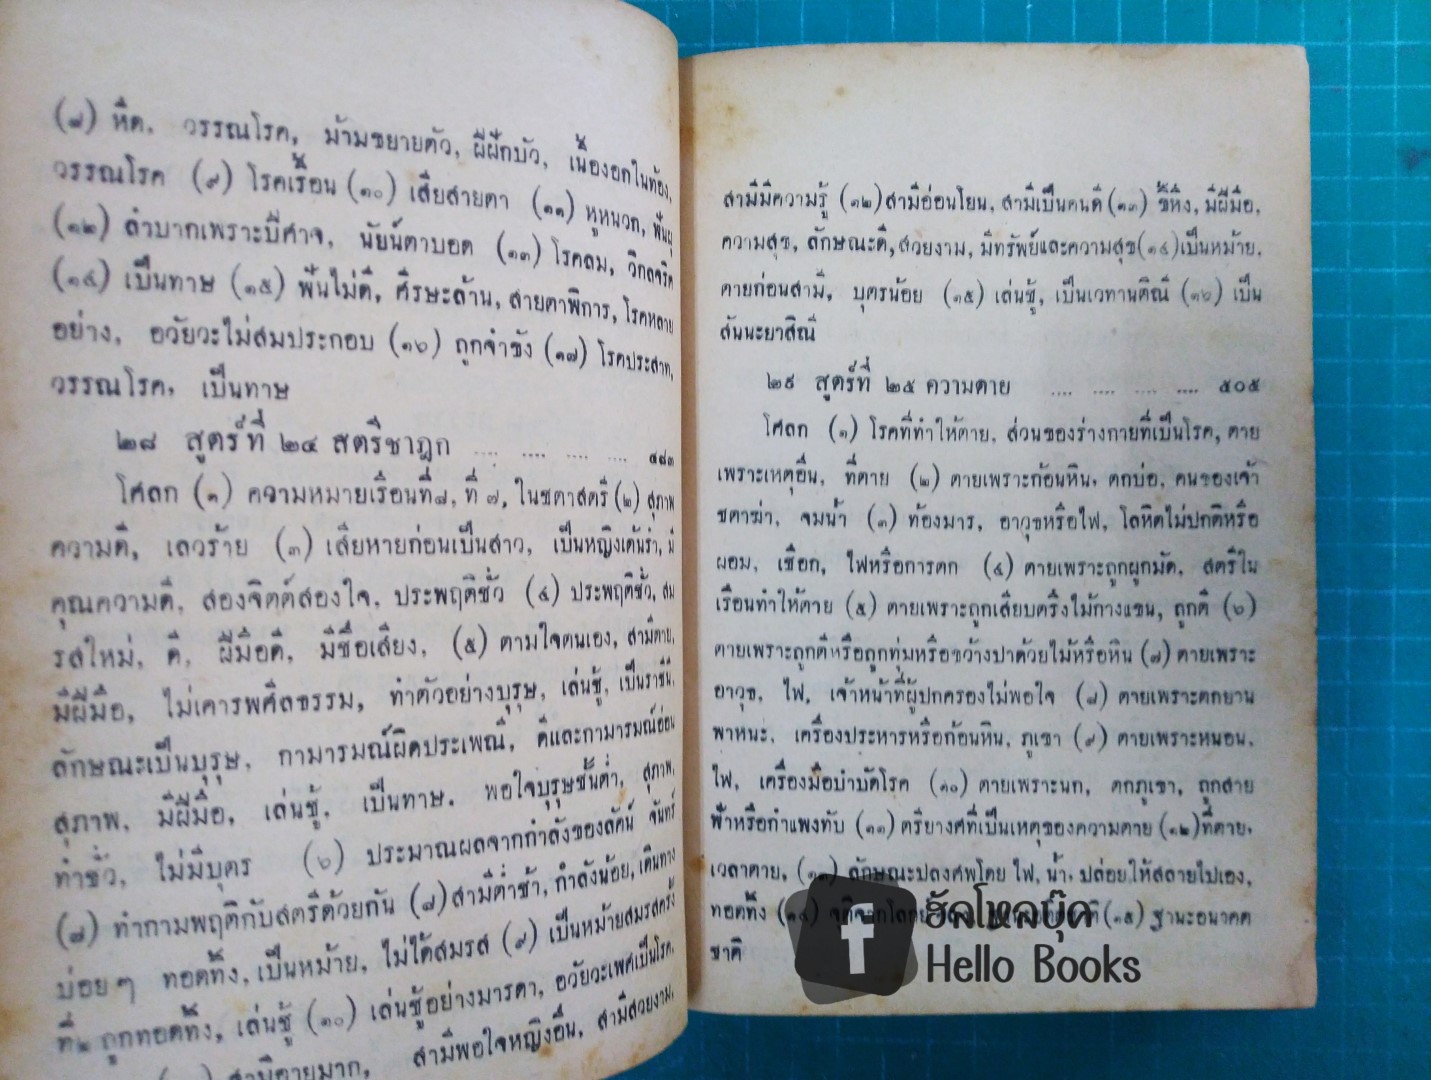 (๘) หืด, วรรณโรค, ม้ามขยายตัว, ฝีฝักบัว, เนื้องอกในท้อง,
วรรณโรค (๙) โรคเรื้อน (๑๐) เสียสายตา (๑๑) หูหนวก, ฟันผุ
(๑๒) ลำบากเพราะปีศาจ, นัยน์ตาบอด (๑๓) โรคลม, วิกลจริต
(๑๔) เป็นทาษ (๑๕) ฟันไม่ดี, ศีรษะล้าน, สายตาพิการ, โรคหลาย
อย่าง, อวัยวะไม่สมประกอบ (๑๖) ถูกจำขัง (๑๗) โรคประสาท,
วรรณโรค, เป็นทาษ
๒๘ สูตร์ที่ ๒๔ สตรีชาฎก .... .... .... .... ๔๘๓
โศลก (๑) ความหมายเรือนที่๘, ที่ ๗, ในชตาสตรี (๒) สุภาพ
ความดี, เลวร้าย (๓) เสียหายก่อนเป็นสาว, เป็นหญิงเต้นรำ, มี
คุณความดี, สองจิตต์สองใจ, ประพฤติชั่ว (๔) ประพฤติชั่ว, สม
รสใหม่, ดี, ฝีมือดี, มีชื่อเสียง, (๕) ตามใจตนเอง, สามีตาย,
มีฝีมือ, ไม่เคารพศีลธรรม, ทำตัวอย่างบุรุษ, เล่นชู้, เป็นราชินี,
ลักษณะเป็นบุรุษ, กามารมณ์ผิดประเพณี, ดีและกามารมณ์อ่อน
สุภาพ, มีฝีมือ, เล่นชู้, เป็นทาษ, พอใจบุรุษชั้นต่ำ, สุภาพ,
ทำชั่ว, ไม่มีบุตร (๖) ประมาณผลจากกำลังของลัคน์ จันทร์
(๗) ทำกามพฤติกับสตรีด้วยกัน (๘) สามีต่ำช้า, กำลังน้อย, เดินทาง
บ่อยๆ ทอดทิ้ง, เป็นหม้าย, ไม่ได้สมรส (๙) เป็นหม้ายสมรสครั้ง
ที่๒ ถูกทอดทิ้ง, เล่นชู้ (๑๐) เล่นชู้อย่างมารดา, อวัยวะเพศเป็นโรค,
สามีอายุมาก, สามีพอใจหญิงอื่น, สามีสวยงาม,
สามีมีความรู้ (๑๒) สามีอ่อนโยน, สามีเป็นคนดี (๑๓) ขี้หึง, มีฝีมือ,
ความสุข, ลักษณะดี, สวยงาม, มีทรัพย์และความสุข (๑๔) เป็นหม้าย,
ตายก่อนสามี, บุตรน้อย (๑๕) เล่นชู้, เป็นเวทานติณี (๑๖) เป็น
สันนะยาสิณี
๒๙ สูตร์ที่ ๒๕ ความตาย .... .... .... .... ๕๐๕
โศลก (๑) โรคที่ทำให้ตาย, ส่วนของร่างกายที่เป็นโรค, ตาย
เพราะเหตุอื่น, ที่ตาย (๒) ตายเพราะก้อนหิน, ตกบ่อ, คนของเจ้า
ชตาฆ่า, จมน้ำ (๓) ท้องมาร, อาวุธหรือไฟ, โลหิตไม่ปกติหรือ
ผอม, เชือก, ไฟหรือการตก (๔) ตายเพราะถูกผูกมัด, สตรีใน
เรือนทำให้ตาย (๕) ตายเพราะถูกเสียบตรึงไม้กางเขน, ถูกตี (๖)
ตายเพราะถูกตีหรือถูกทุ่มหรือขว้างปาด้วยไม้หรือหิน (๗) ตายเพราะ
อาวุธ, ไฟ, เจ้าหน้าที่ผู้ปกครองไม่พอใจ (๘) ตายเพราะตกยาน
พาหนะ, เครื่องประหารหรือก้อนหิน, ภูเขา (๙) ตายเพราะหนอน,
ไฟ, เครื่องมือบำบัดโรค (๑๐) ตายเพราะนก, ตกภูเขา, ถูกสาย
ฟ้าหรือกำแพงทับ (๑๑) ตรียางศที่เป็นเหตุของความตาย (๑๒) ที่ตาย,
เวลาตาย, (๑๓) ลักษณะปลงศพโดย ไฟ, น้ำ, ปล่อยให้สลายไปเอง,
ทอดทิ้ง (๑๔) (๑๕) ฐานะอนาคต
ชาติ
ฮัลโหลบุ๊ค
Hello Books